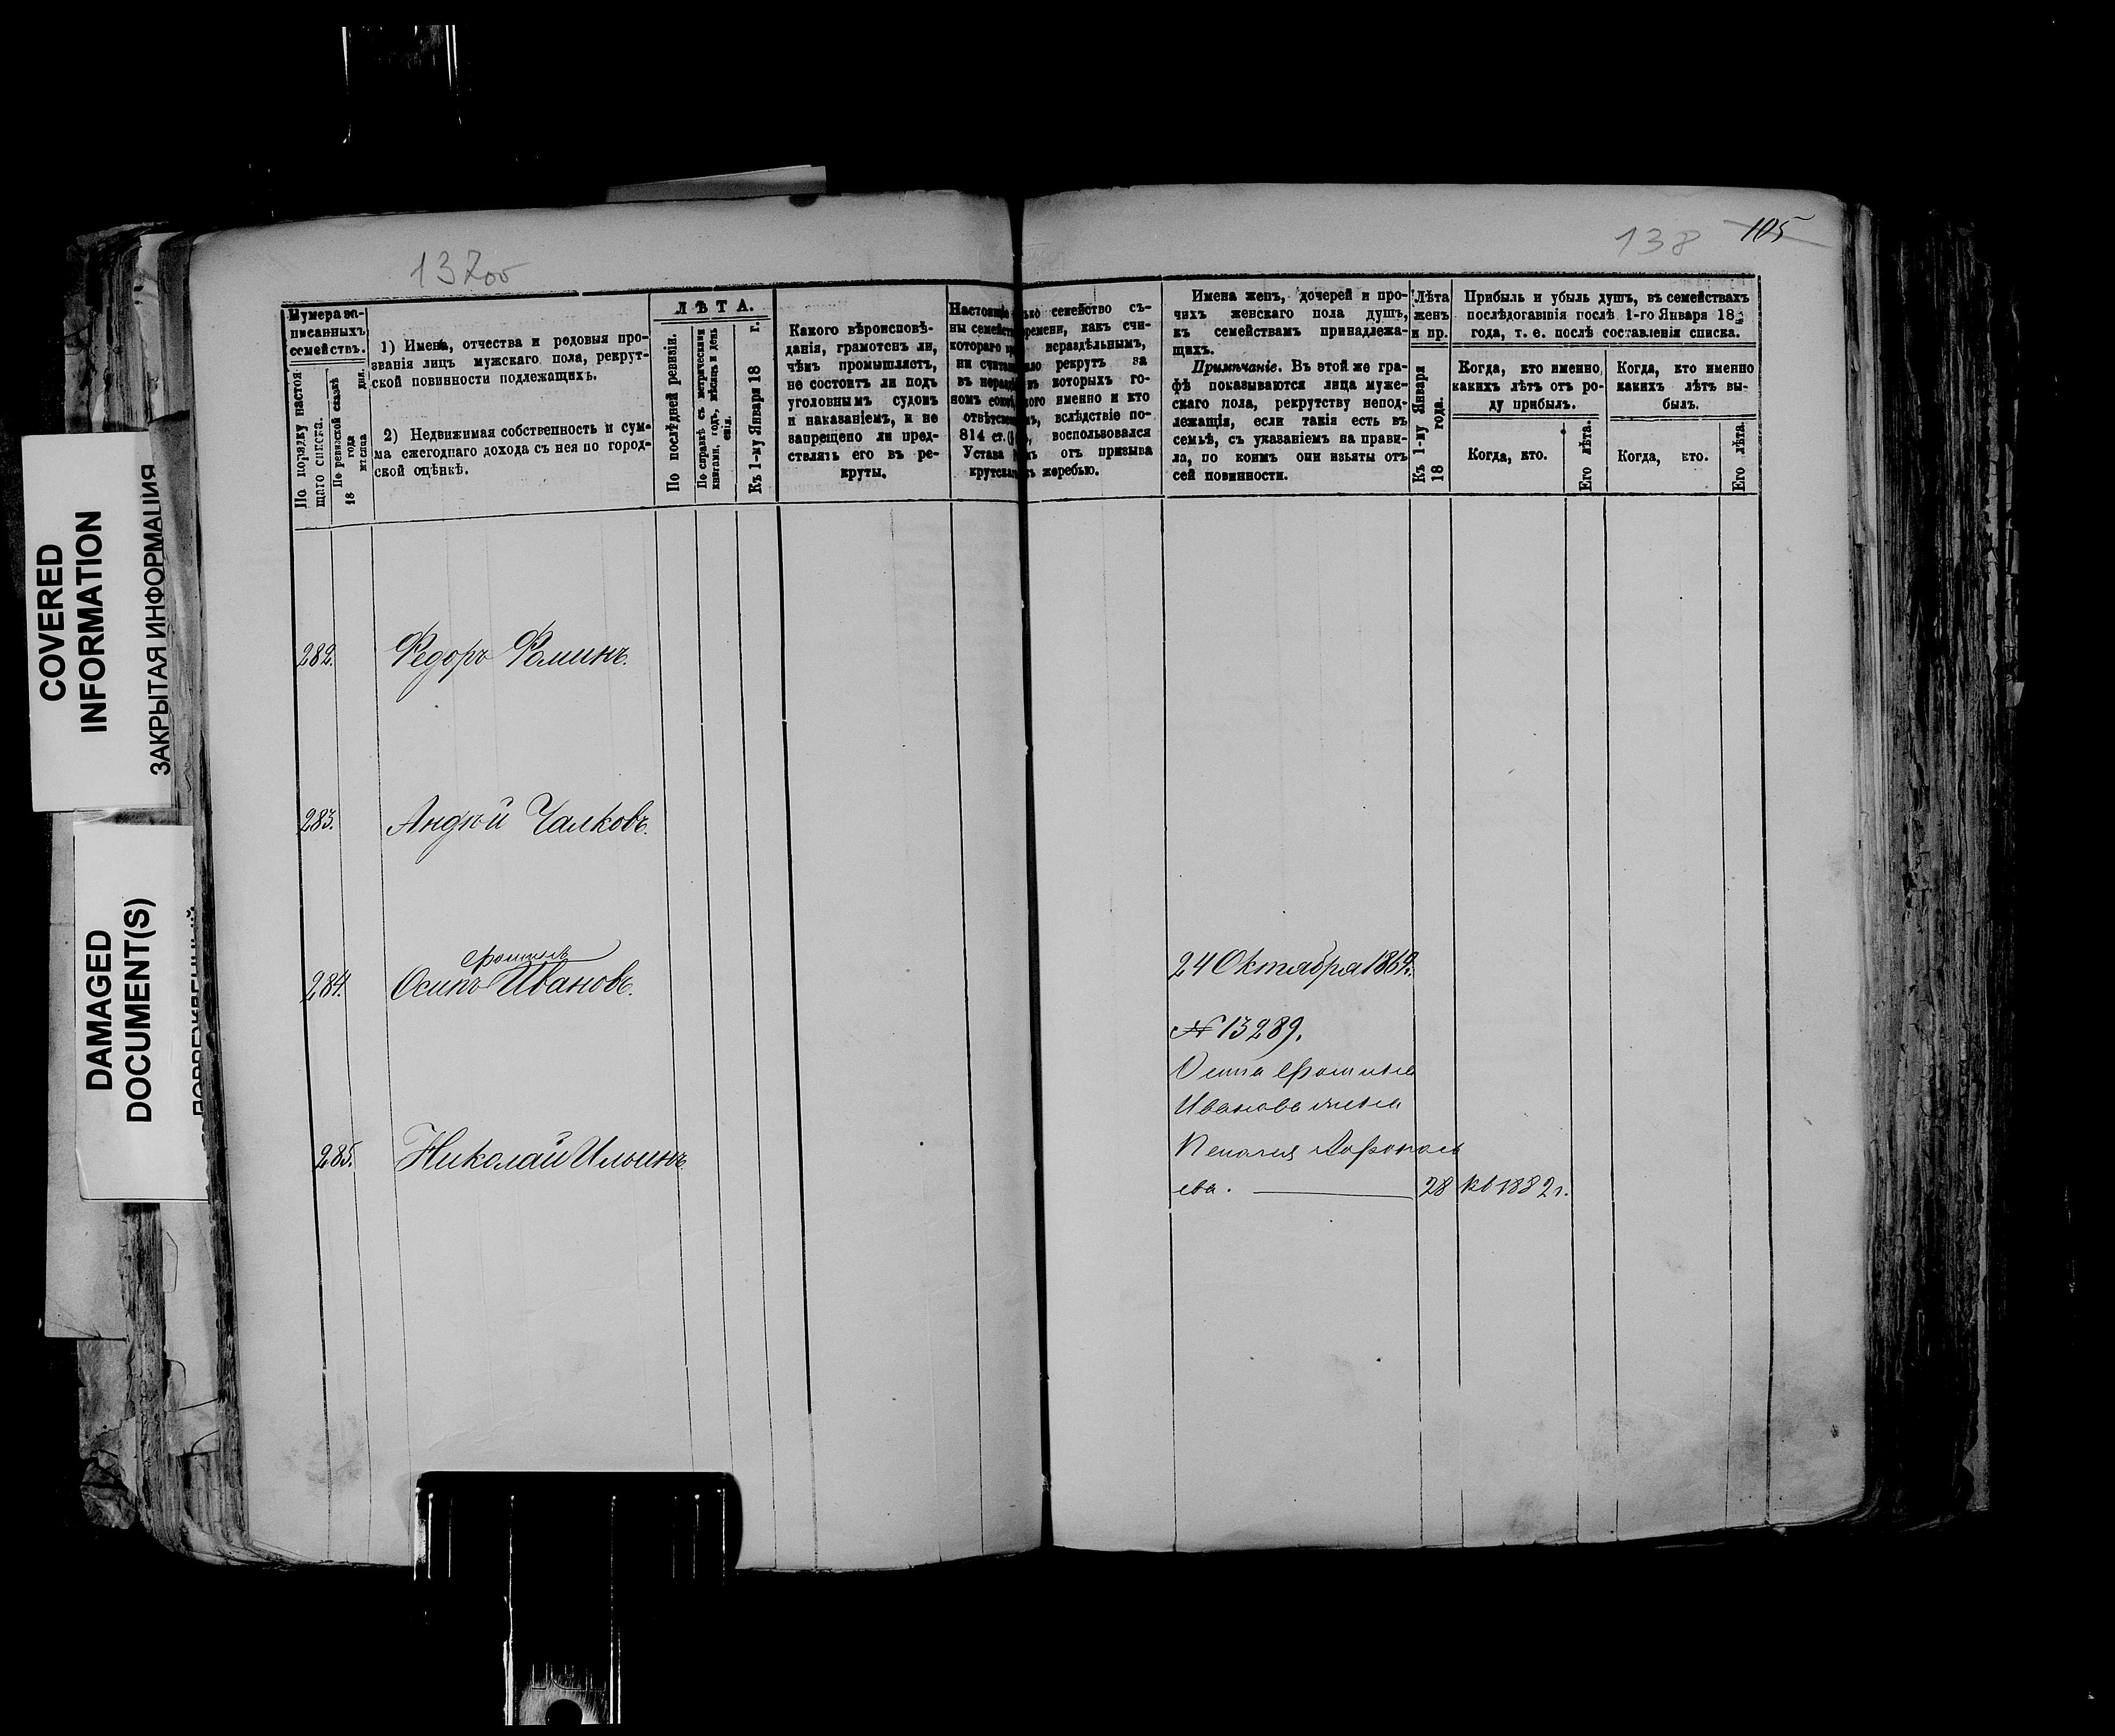 COVERED
INFORMATION
ЗАКРЫТАЯ ИНФОРМАЦИЯ
DAMAGED
DOCUMENT(S)
137об
138 105
Нумера за-
писанныхъ
семействъ.
По порядку настоя-
щаго списка.
По ревизской сказкѣ
18 года
мѣсяца дня.
1) Имена, отчества и родовыя про-
званія лицъ мужскаго пола, рекрут-
ской повинности подлежащихъ.
2) Недвижимая собственность и сум-
ма ежегоднаго дохода съ нея по город-
ской оцѣнкѣ.
ЛѢТА.
По послѣдней ревизіи.
По справкѣ съ метрическими
книгами, годъ, мѣсяцъ и день
Къ 1-му Января 18 г.
Какого вѣроисповѣ-
данія, грамотенъ ли,
чѣмъ промышляетъ,
не состоитъ ли подъ
уголовнымъ судомъ
и наказаніемъ, и не
запрещено ли пред-
ставлять его въ ре-
круты.
семейство съ-
времени, какъ счи-
котораго нераздѣльнымъ,
рекрутъ за
въ которыхъ го-
именно и кто
вслѣдствіе по-
814 ст. воспользовался
Устава отъ призыва
жеребью.
Имена женъ, дочерей и про-
чихъ женскаго пола душъ,
къ семействамъ принадлежа-
щихъ.
Примѣчаніе. Въ этой же гра-
фѣ показываются лица муже-
скаго пола, рекрутству непод-
лежащія, если такія есть въ
семьѣ, съ указаніемъ на прави-
ла, по коимъ они изъяты отъ
сей повинности.
Лѣта
женъ
и пр.
Къ 1-му Января
18 года.
Прибыль и убыль душъ, въ семействахъ
послѣдовавшія послѣ 1-го Января 18
года, т. е. послѣ составленія списка.
Когда, кто именно,
какихъ лѣтъ отъ ро-
ду прибылъ.
Когда, кто именно
какихъ лѣтъ вы-
былъ.
Когда, кто.
Его лѣта.
Когда, кто.
Его лѣта.
282. Федоръ Фоминъ.
283. Андрей Чалковъ.
284. Осипъ Ивановъ.
24 Октября 1869г.
№ 13289.
Осипа
Иванова жена
285. Николай Ильинъ
Пелагея
ева. 28 къ 1882 г.